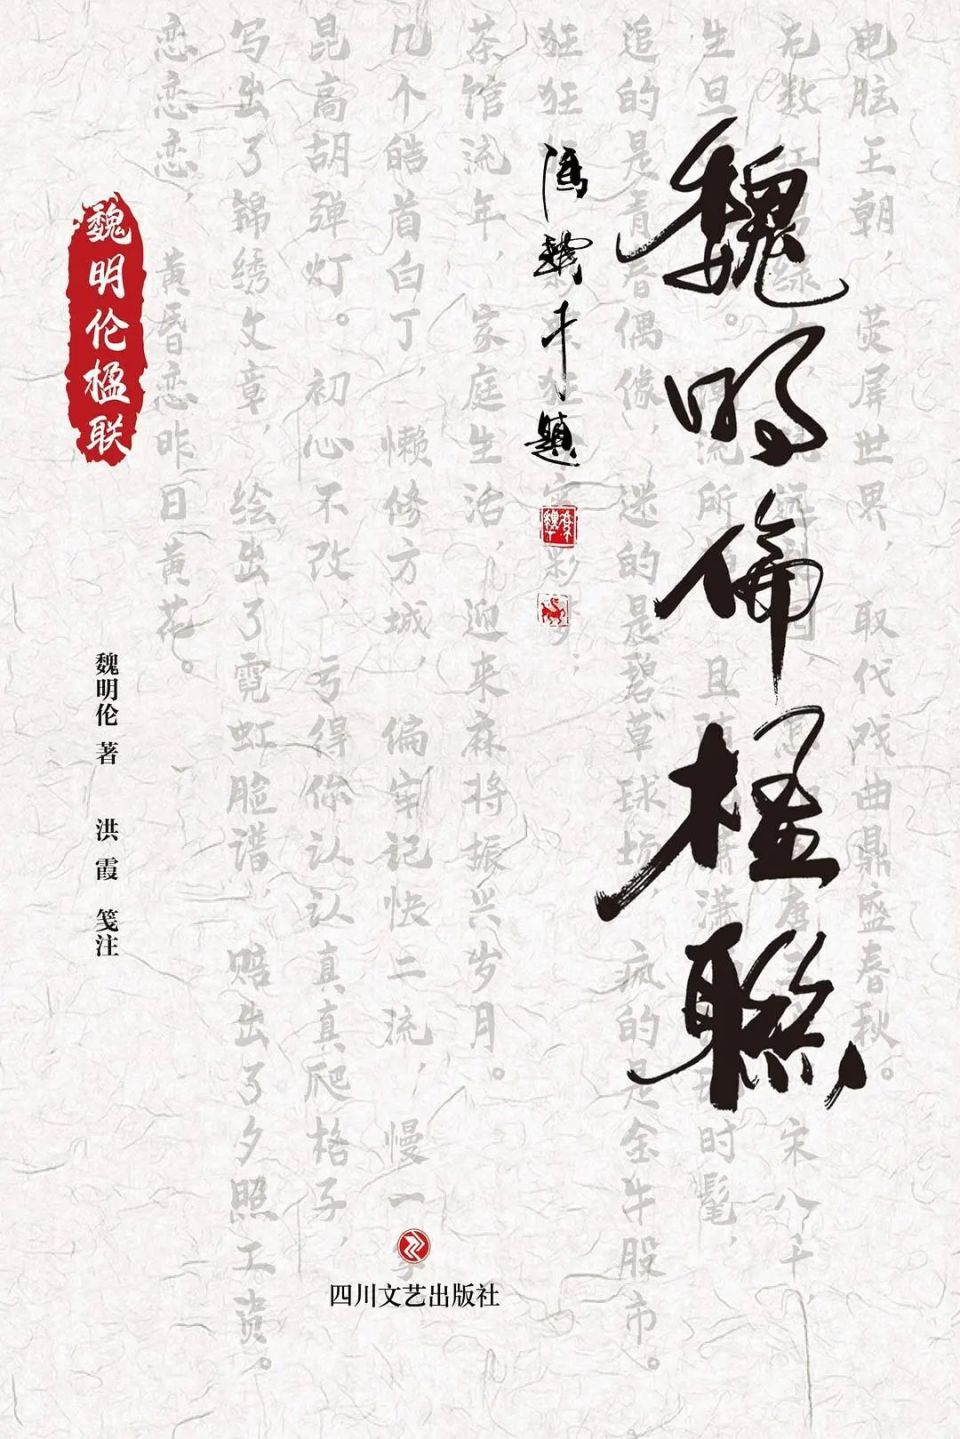 魏明倫楹聯
馮驥才題
魏明伦楹联
魏明伦 著 洪霞 笺注
四川文艺出版社
电脑王朝，荧屏世界，取代戏曲鼎盛春秋。
无数 宋八千，
生旦 。 流所 且 潇 时髦，
追的是青春偶像，迷的是碧草球坊，疯的是金牛股市。
狂狂
茶馆流年，家庭生活，迎来麻将振兴岁月。
几个皓首白丁，懒修方城，偏牢记快二流，慢一
昆高胡弹灯。初心不改，亏得你认认真真爬格子，
写出了锦绣文章，绘出了霓虹脸谱，赔出了夕照工资。
恋恋恋，黄昏恋昨日黄花。